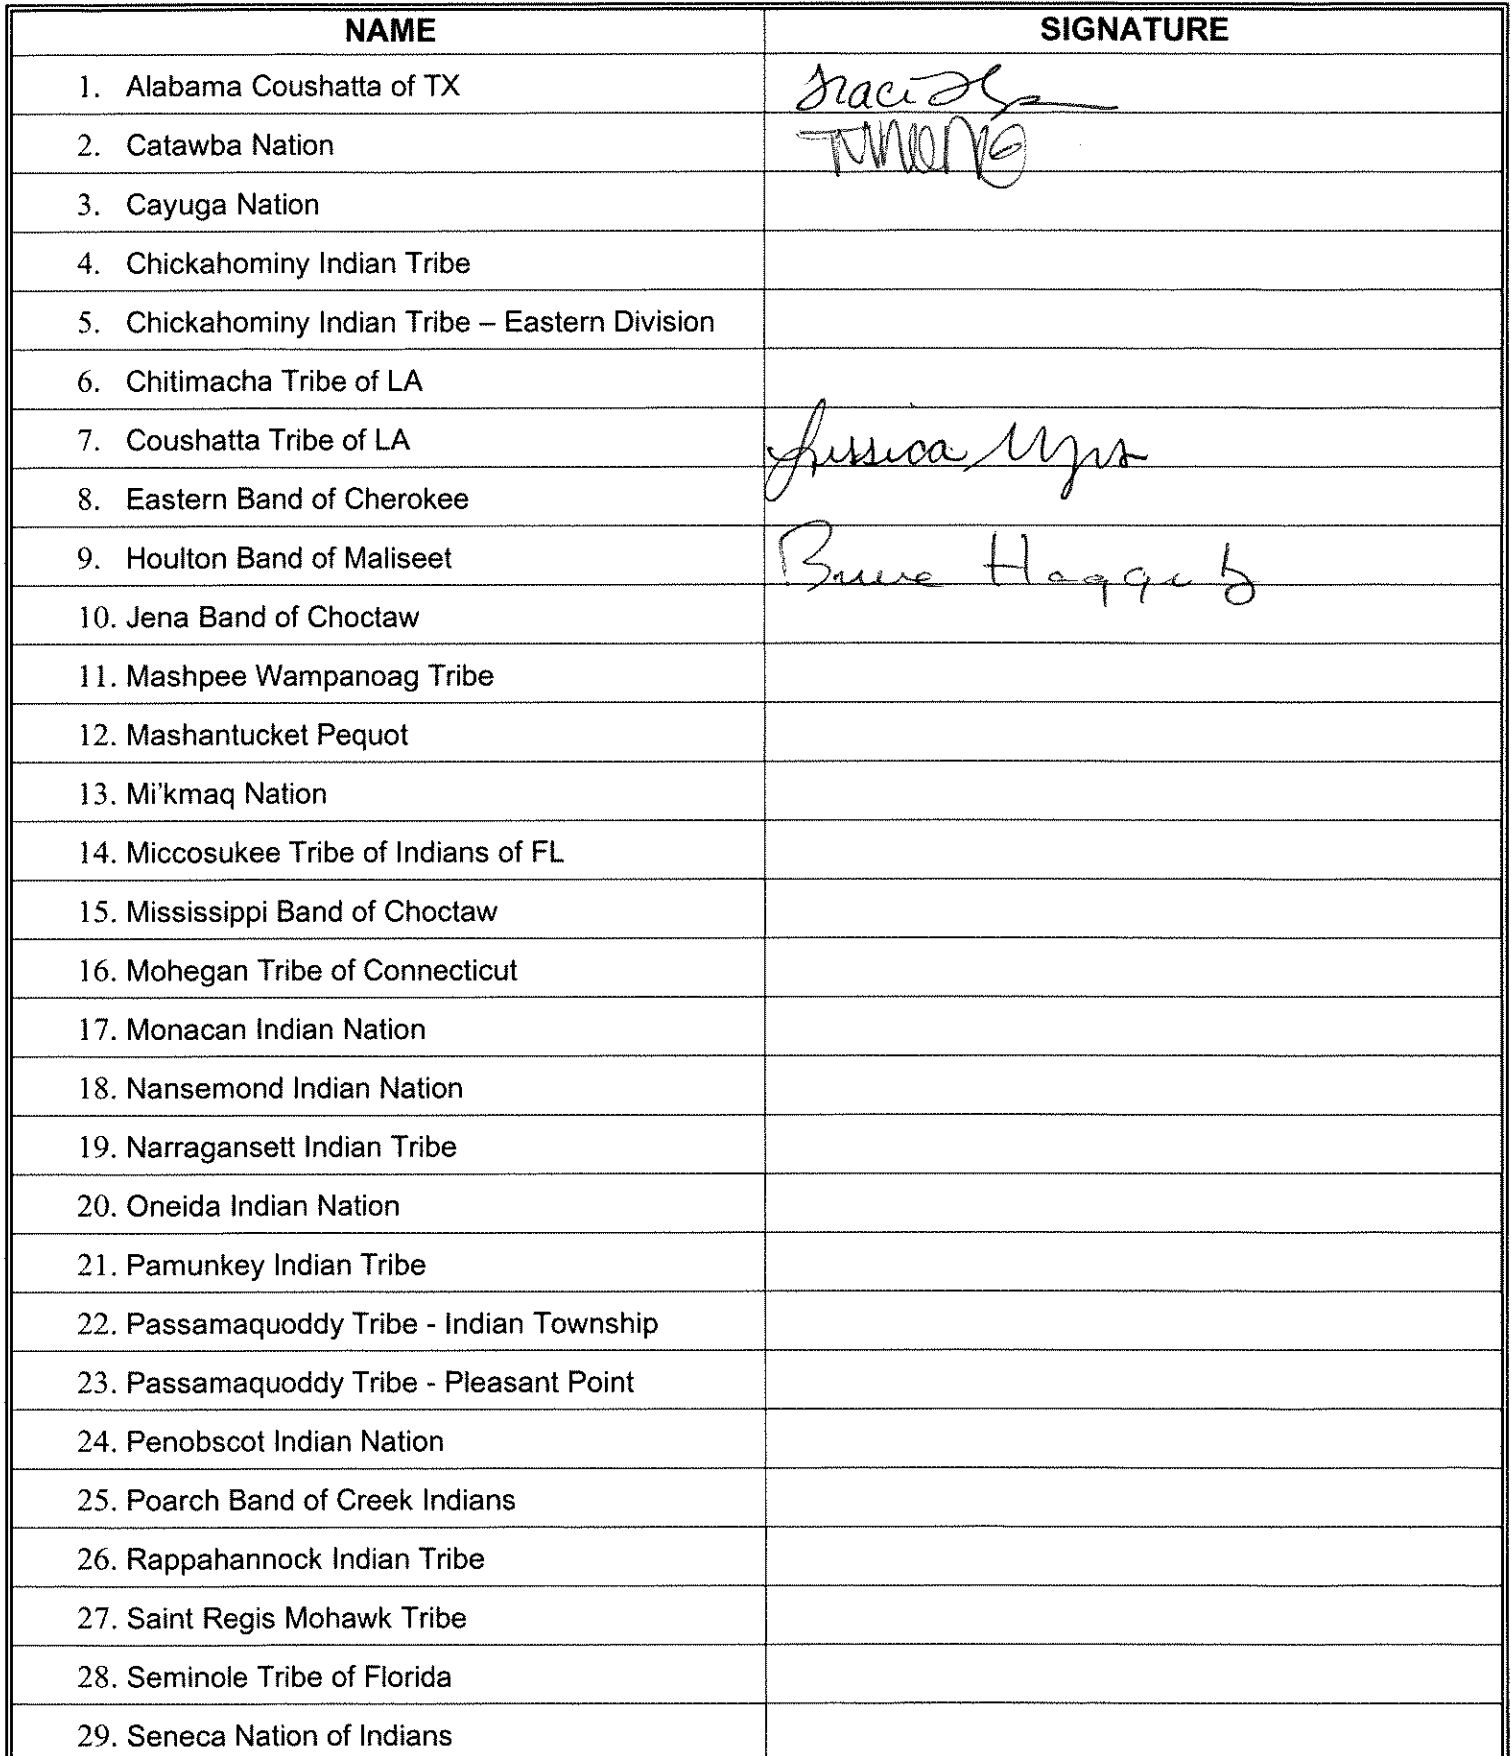 NAME SIGNATURE
1. Alabama Coushatta of TX Traci
2. Catawba Nation
3. Cayuga Nation
4. Chickahominy Indian Tribe
5. Chickahominy Indian Tribe – Eastern Division
6. Chitimacha Tribe of LA
7. Coushatta Tribe of LA Jessica
8. Eastern Band of Cherokee
9. Houlton Band of Maliseet
10. Jena Band of Choctaw
11. Mashpee Wampanoag Tribe
12. Mashantucket Pequot
13. Mi'kmaq Nation
14. Miccosukee Tribe of Indians of FL
15. Mississippi Band of Choctaw
16. Mohegan Tribe of Connecticut
17. Monacan Indian Nation
18. Nansemond Indian Nation
19. Narragansett Indian Tribe
20. Oneida Indian Nation
21. Pamunkey Indian Tribe
22. Passamaquoddy Tribe - Indian Township
23. Passamaquoddy Tribe - Pleasant Point
24. Penobscot Indian Nation
25. Poarch Band of Creek Indians
26. Rappahannock Indian Tribe
27. Saint Regis Mohawk Tribe
28. Seminole Tribe of Florida
29. Seneca Nation of Indians